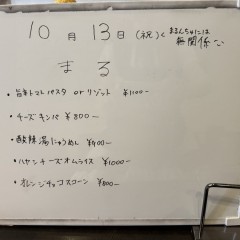 10月13日(祝)く まるんちゅには
無関係〜
まる
・旨辛トマトパスタ or リゾット ¥1100-
・チーズキンパ ¥800-
・酸辣湯にゅうめん ¥900-
・ハヤシチーズオムライス ¥1000-
・オレンジチョコスコーン ¥800-